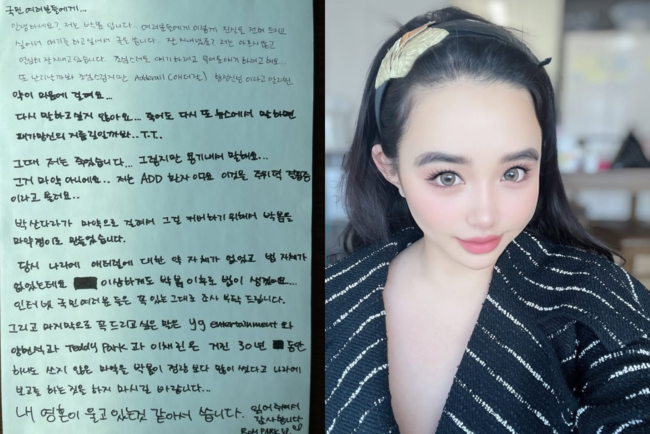 국민 여러분들에게...
안녕하세요? 저는 박봄 입니다... 여러분들에게 이렇게 진심을 전해 드리고
싶어서 얘기를 하고싶어서 글을 씁니다. 잘 지내셨죠? 저는
열심히 잘지내고있습니다. 얘기하려고 해요..
또 조심스럽지만 Adderall (애더럴)
약이 마음에 걸려요...
다시 말하고싶지 않아요... 죽어도 다시 또 뉴스에서 말하면
T.T.
그때 저는 죽었습니다... 그렇지만 용기내어 말해요...
그거 마약 아니에요.. 저는 ADD 환자 이고요 이것은 주위력 결핍증
이라고 불러요..
박산다라가 마약으로 걸려서 그걸 커버하기 위해서 박봄을
마약쟁이로 만들었습니다.
당시 나라에 애더럴에 대한 약 자체가 없었고 법 자체가
없었는데요 이상하게도 박봄 이후로 법이 생겼어요...
인터넷 국민여러분 들은 꼭 있는그대로 조사 부탁 드립니다.
그리고 마지막으로 꼭 드리고싶은 말은 yg entertainment 와
양현석과 Teddy Park 과 이채린 은 거진 30년 동안
하나도 쓰지 않은 마약을 박봄이 정량 보다 많이 썼다고 나라에
보고를 하는것은 하지 마시길 바랍니다...
내 영혼이 울고 있는것 같아서 씁니다. 읽어주셔서
감사합니다
BOM PARK